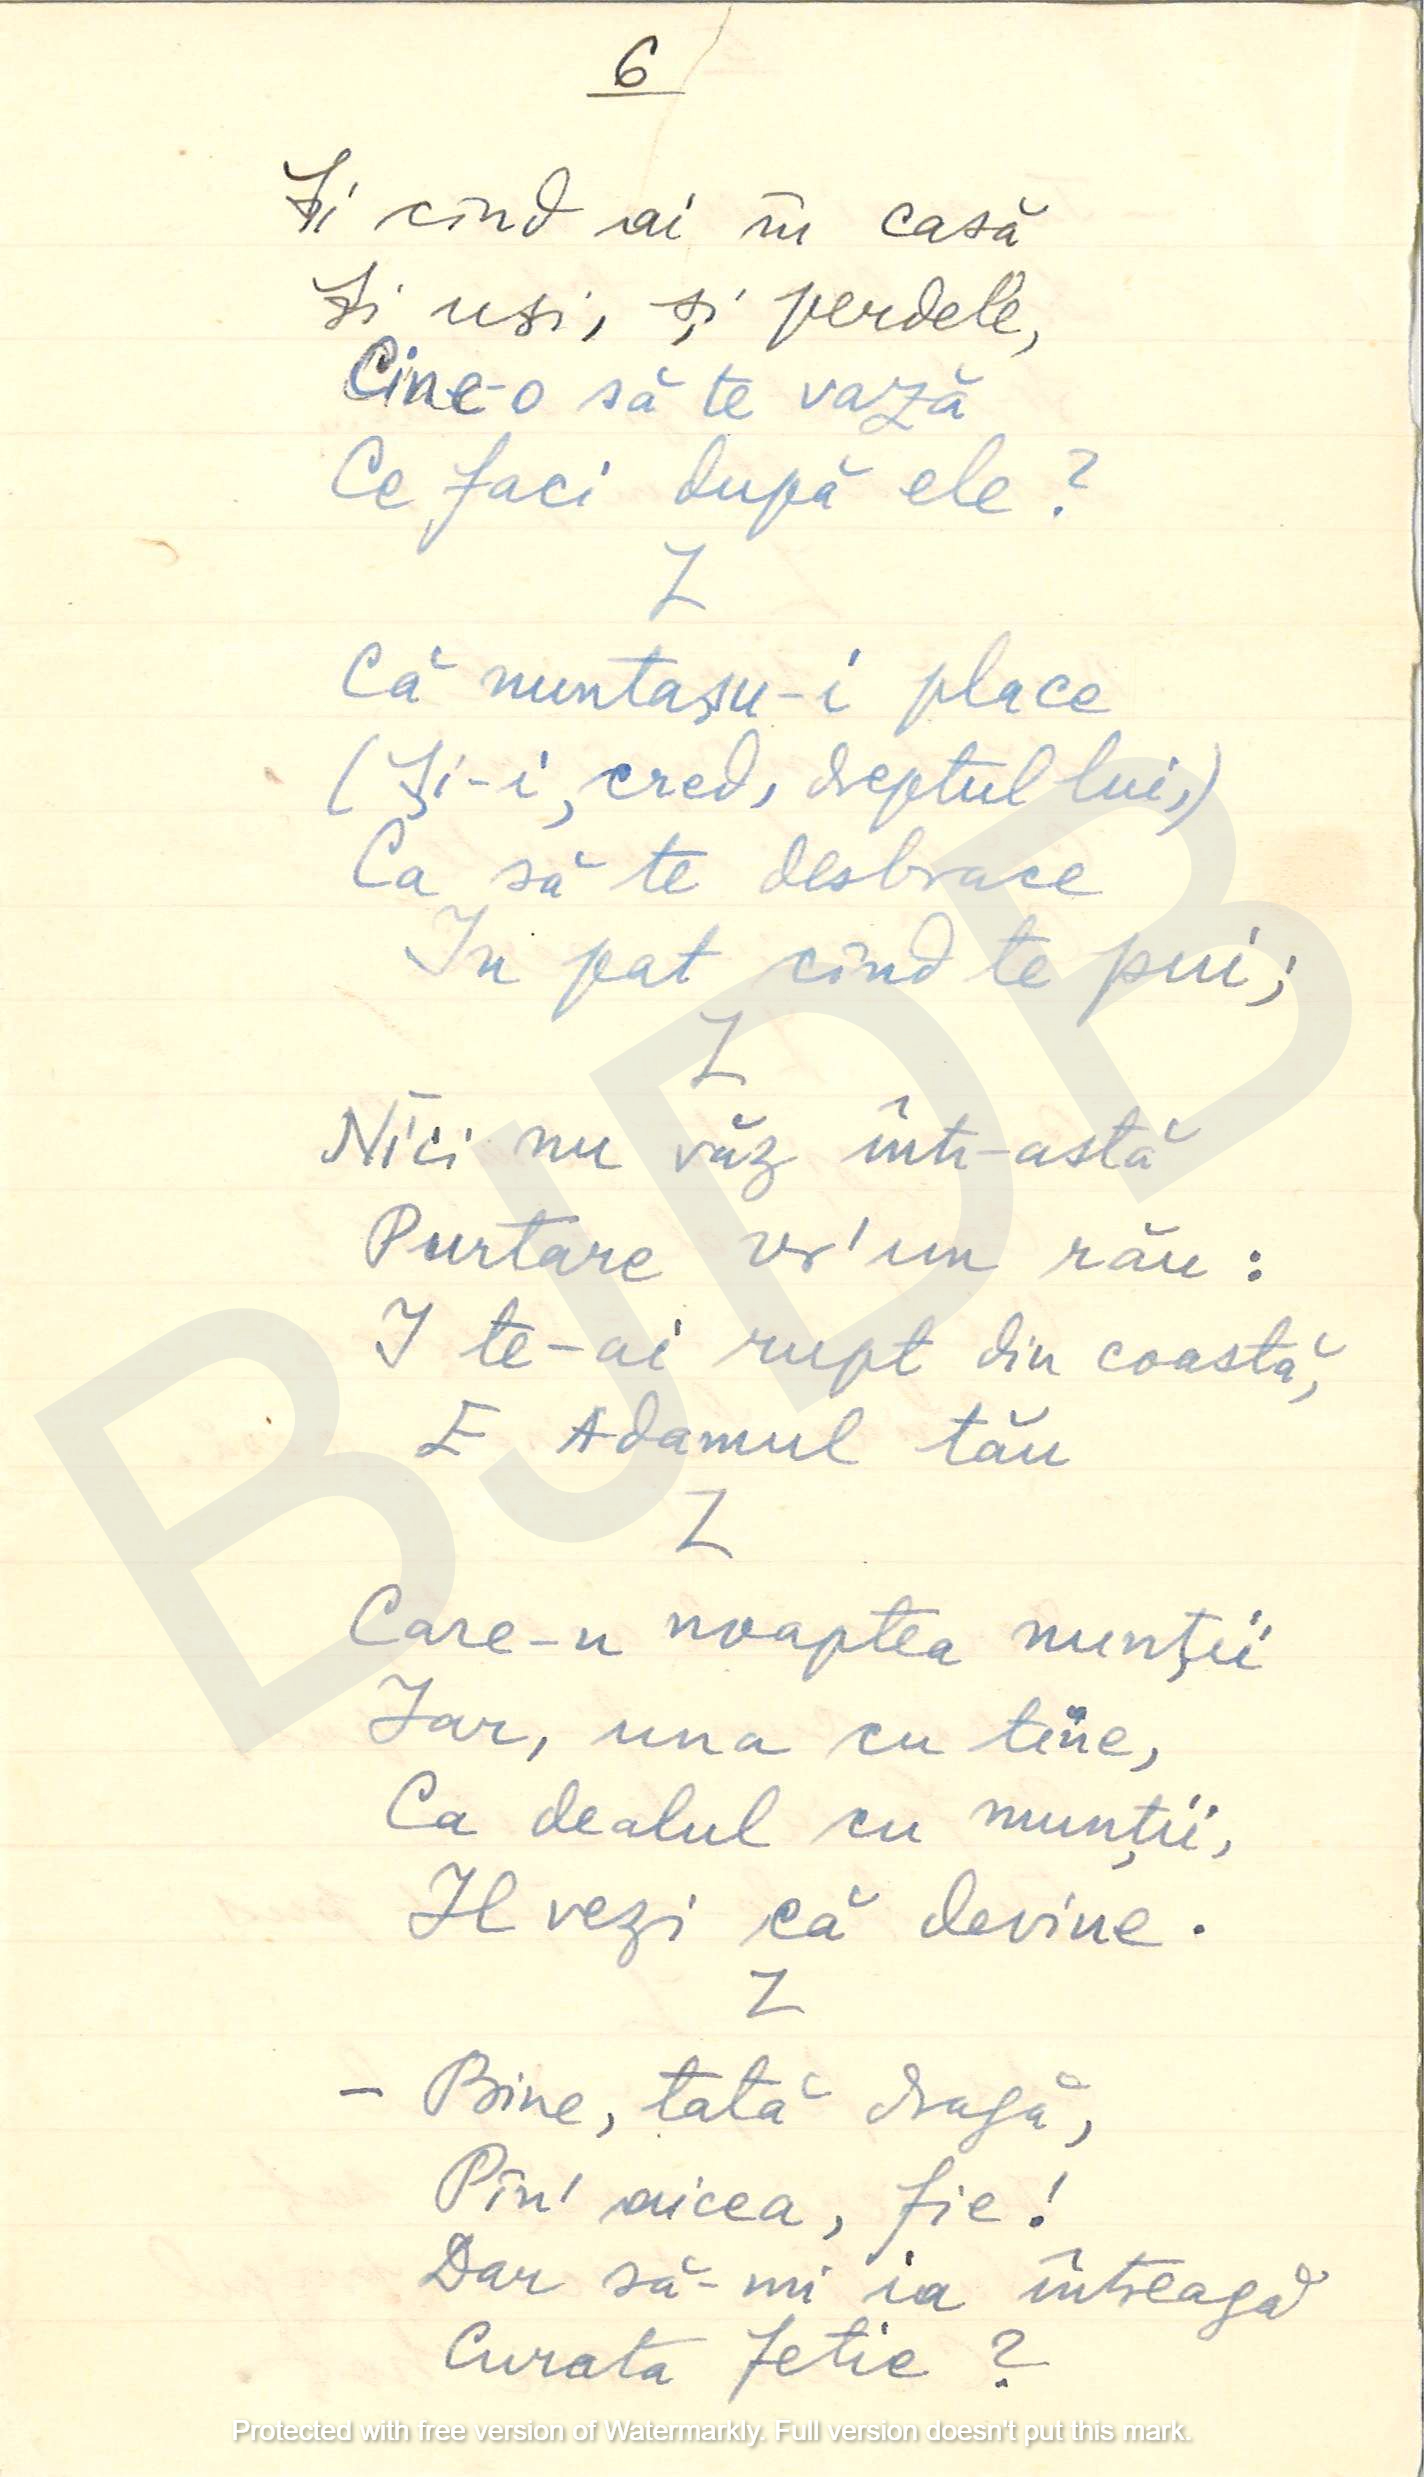 6
Și cînd ai în casă
Și uși, și perdele,
Cine-o să te vază
Ce faci după ele?
Z
Că nuntașu-i place
(Și-i, cred, dreptul lui,)
Ca să te desbrace
In pat cînd te pui;
Z
Nici nu văz într-astă
Purtare vr'un rău:
I te-ai rupt din coastă,
E Adamul tău
Z
Care-n noaptea nunții
Iar, una cu tine,
Ca dealul cu munții,
Il vezi că devine.
Z
- Bine, tată dragă,
Pîn' aicea, fie!
Dar să-mi ia întreagă
Curata fetie?
BJDB
Protected with free version of Watermarkly. Full version doesn't put this mark.